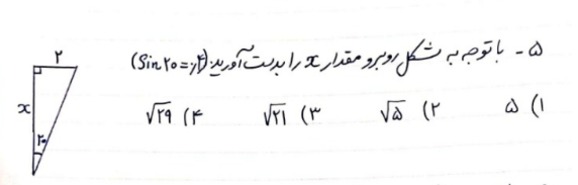 ۵- با توجه به شکل روبرو مقدار x را بدست آورید: (Sin ۲۰ = ۰/۴)
۱) ۵   ۲) √۵   ۳) √۲۱   ۴) √۲۹
۲
x
۲۰